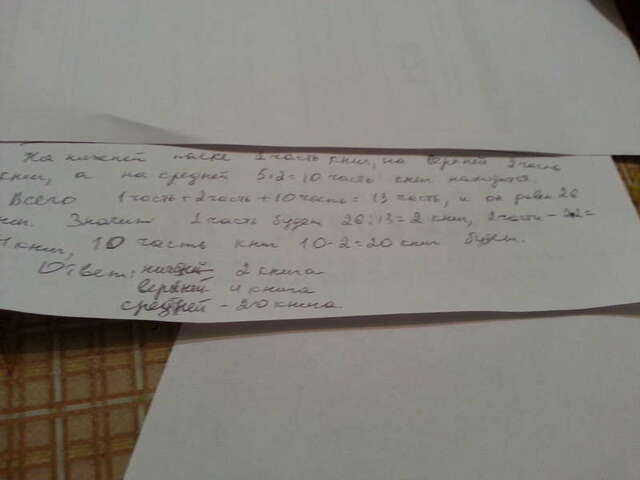 На нижней полке 1 часть книг, на верхней 2 часть
книг, а на средней 5·2=10 часть книг находится
Всего 1 часть+2 часть+10 часть=13 часть, и он равен 26
Значит 1 часть будет 26:13=2 книг, 2 части - 2·2=
4 книг, 10 часть книг 10·2=20 книг будет.
Ответ: нижней 2 книга
верхней 4 книга
средней - 20 книга.